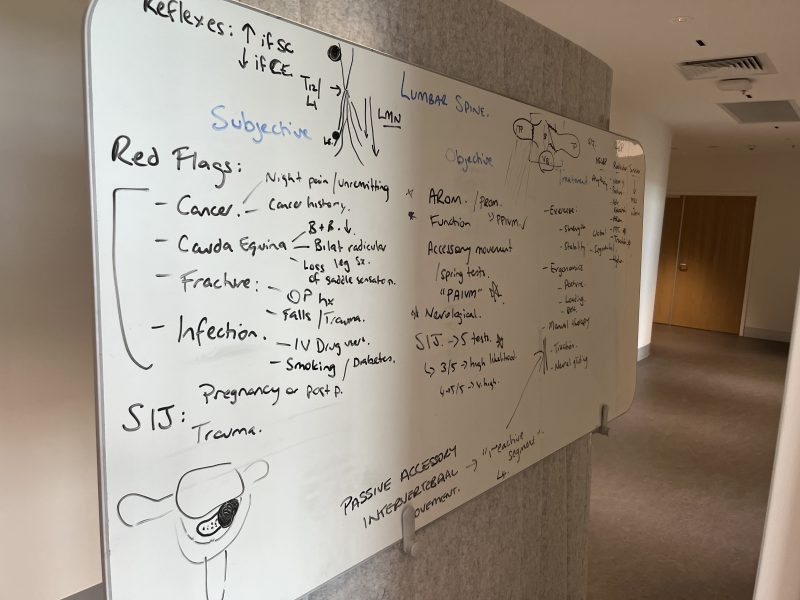 Reflexes: ↑ if SC
↓ if CE.
T12/
L1
LMN
Subjective
Red Flags:
- Cancer.
Night pain / unremitting
- Cancer history.
- Cauda Equina
B + B. ↓
- Bilat radicular
leg Sx.
- Loss of saddle sensation.
- Fracture:
- OP hx
- Falls / Trauma.
- Infection.
- IV Drug users.
- Smoking / Diabetes.
SIJ:
Pregnancy or post p.
Trauma.
LUMBAR SPINE.
Objective
AROM. / PROM.
Function "PPIVM"
Accessory movement
/ spring tests.
"PAIVM"
Neurological.
SIJ. → 5 tests.
↳ 3/5 → high likelihood.
↳ 5/5 → v. high.
PASSIVE ACCESSORY
INTERVERTEBRAL
MOVEMENT.
segment".
TP
Treatment
- Exercise:
- Strength
- Stability
- Ergonomics
- Posture
- Loading.
- Manual therapy
- Traction.
- Neural gliding